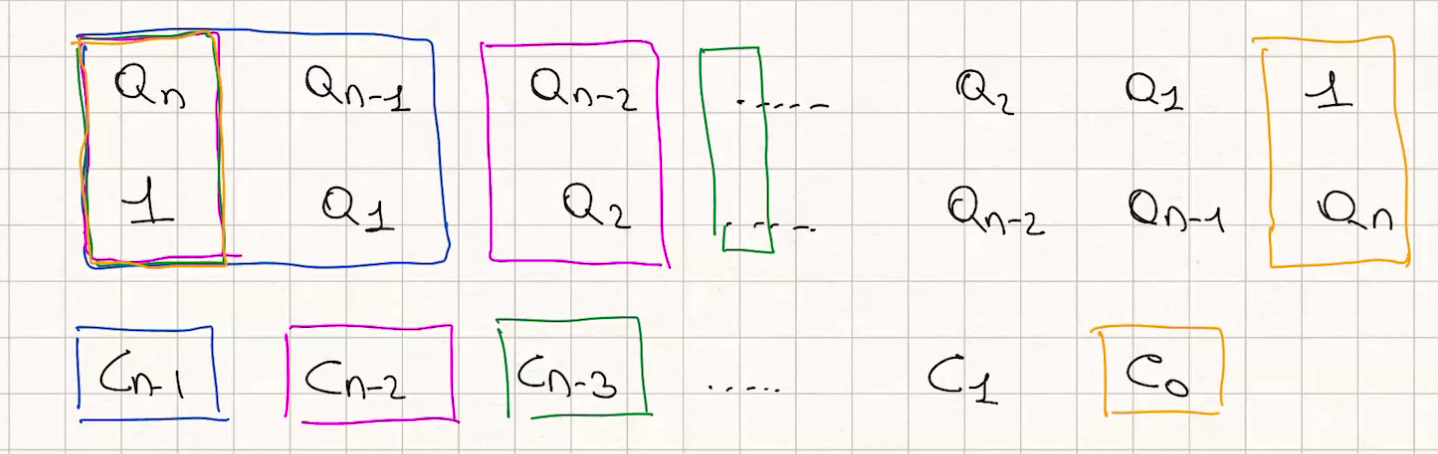 Qn Qn-1 Qn-2 ..... Q2 Q1 1
1 Q1 Q2 ..... Qn-2 Qn-1 Qn
Cn-1 Cn-2 Cn-3 ..... C1 C0